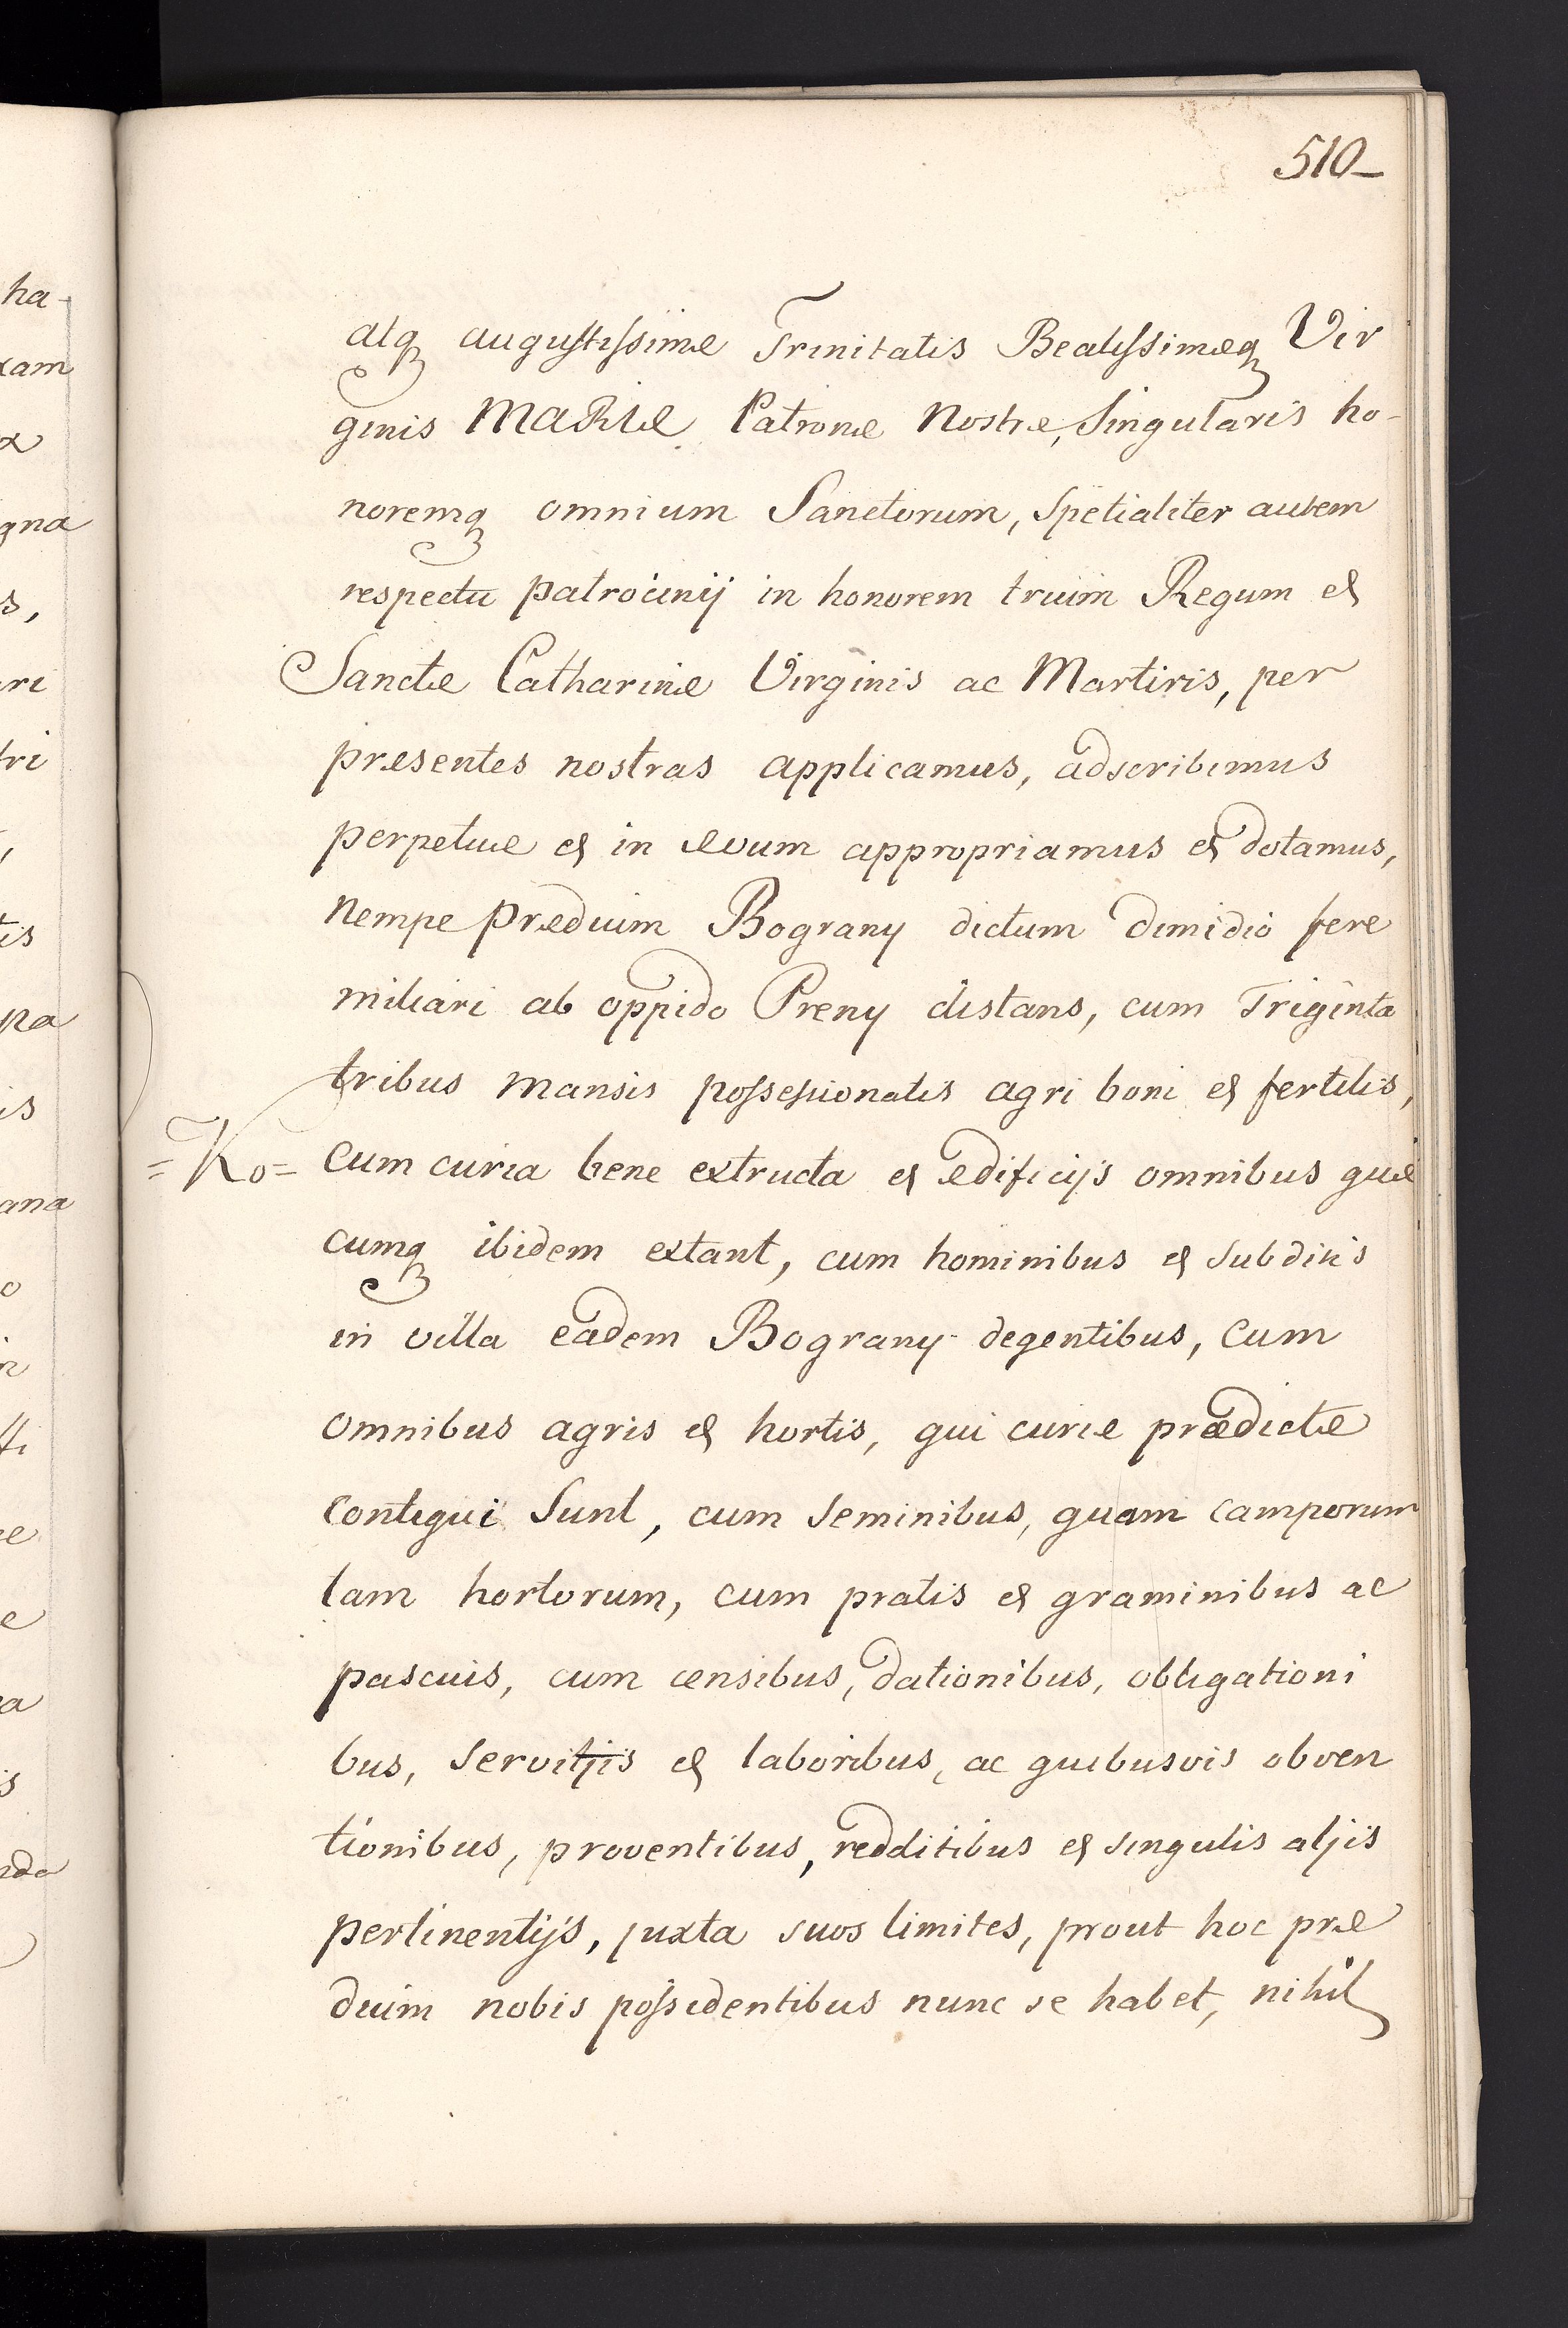 510_
atq augustissimæ Trinitatis Beatissimæq Vir
ginis MARIÆ Patronæ Nostræ, Singularis ho-
noremq omnium Sanctorum, Spetialiter autem
respectu patrocinij in honorem trium Regum et
Sanctæ Catharinæ Virginis ac Martiris, per
præsentes nostras applicamus, adscribimus
perpetuæ et in ævum appropriamus et dotamus,
nempe prædium Bograny dictum dimidio fere
miliari ab oppido Preny distans, cum Triginta
tribus mansis possessionatis agri boni et fertilis,
=Ko= cum curia bene extructa et ædificijs omnibus quæ
cumq ibidem extant, cum hominibus et subditis
in villa eadem Bograny degentibus, cum
omnibus agris et hortis, qui curiæ prædictæ
contigui Sunt, cum seminibus, quam camporum
tam hortorum, cum pratis et graminibus ac
pascuis, cum censibus, dationibus, obligationi
bus, servitjis et laboribus, ac quibusvis obven
tionibus, proventibus, redditibus et singulis aljis
pertinentijs, juxta suos limites, prout hoc præ
dium nobis possidentibus nunc se habet, nihil
ha-
xam
x
gna
s,
ri
tri
tis
pa
is
ana
o
e
e
a
is